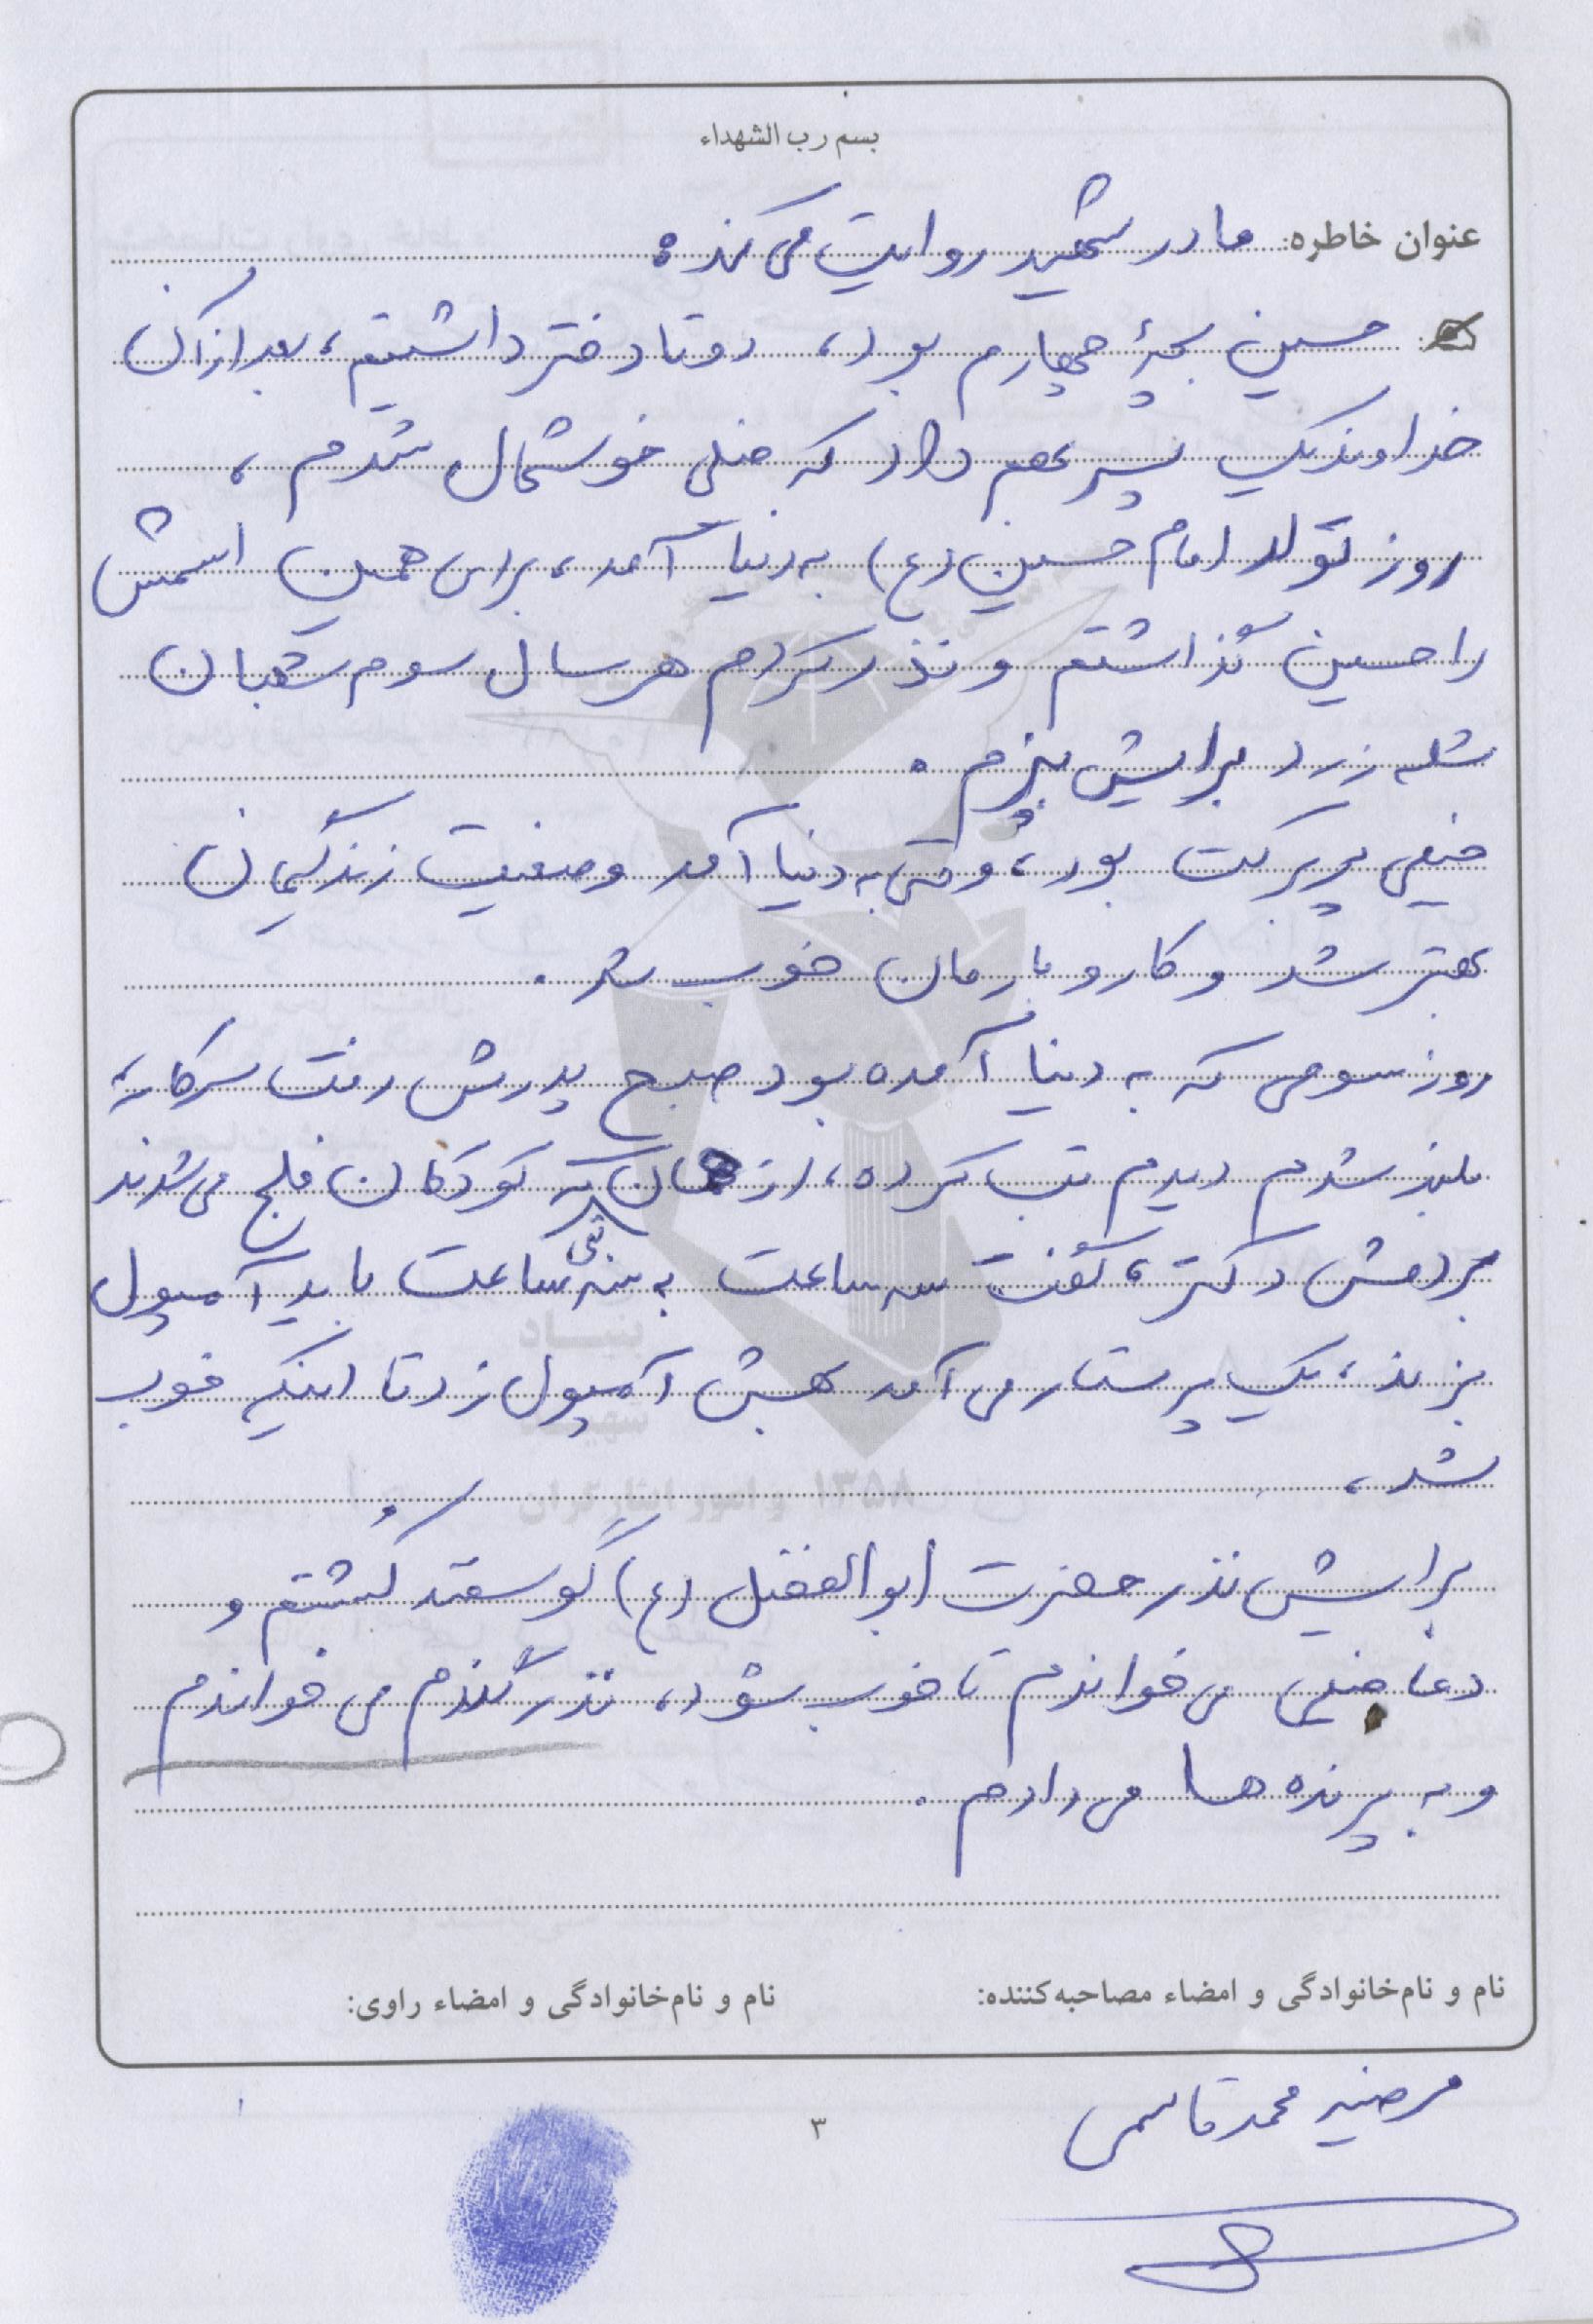 بسم رب الشهداء
عنوان خاطره: مادر شهید روایت می‌کند:
حسین بچۀ چهارم بود، دوتا دختر داشتیم، بعد از آن
خداوند یک پسر بهم داد که خیلی خوشحال شدم،
روز تولد امام حسین (ع) به دنیا آمد، برای همین اسمش
را حسین گذاشتم و نذر کردم هر سال سوم شعبان
شله زرد برایش بپزم.
خیلی پربرکت بود، وقتی به دنیا آمد وضعیت زندگیمان
بهتر شد و کار و بارمان خوب شد.
روز سومی که به دنیا آمده بود صبح پدرش رفت سرکار،
بلند شدم دیدم تب کرده، از همان تبی که کودکان فلج می‌شدند
بردمش دکتر، گفت سه ساعت به سه ساعت باید آمپول
بزند، یک پرستار می‌آمد بهش آمپول زد تا اینکه خوب
شد،
برایش نذر حضرت ابوالفضل (ع) گوسفند کُشتم و
دعا خیلی می‌خواندم تا خوب بشود، نذر گندم می‌خواندم
و به پرنده ها می‌دادم.
نام و نام‌خانوادگی و امضاء مصاحبه‌کننده: نام و نام‌خانوادگی و امضاء راوی:
مرضیه محمدقاسمی
۳
بنیاد
شهید
و امور ایثارگران ۱۳۵۸